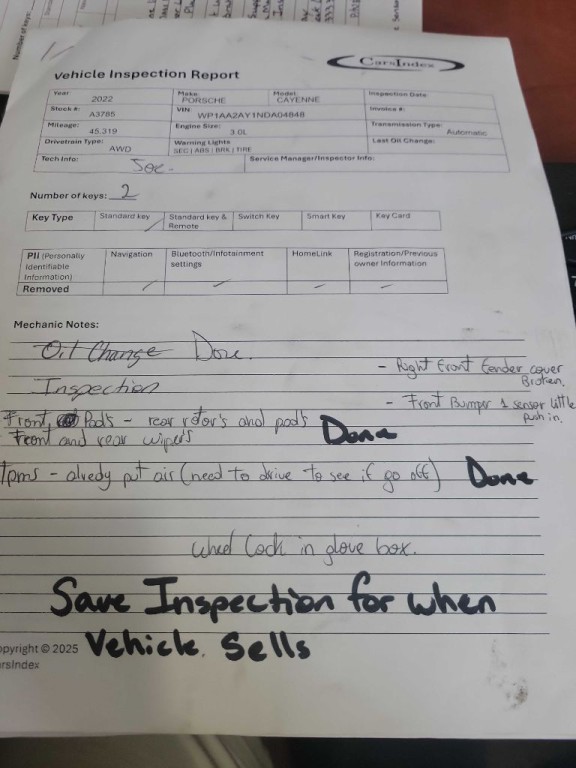 CarsIndex
Vehicle Inspection Report
Year 2022 Make: PORSCHE Model: CAYENNE Inspection Date
Stock #: A3785 VIN: WP1AA2AY1NDA04848 Invoice #:
Mileage: 45,319 Engine Size: 3.0L Transmission Type: Automatic
Drivetrain Type: AWD Warning Lights SEC | ABS | BRK | TIRE Last Oil Change:
Tech Info: Joe - Service Manager/Inspector Info:
Number of keys: 2
Key Type Standard key Standard key & Remote Switch Key Smart Key Key Card
PII (Personally Identifiable Information) Navigation Bluetooth/Infotainment settings HomeLink Registration/Previous owner Information
Removed
Mechanic Notes:
Oil Change Done.
- Right Front fender cover
Broken.
Inspection
- Front Bumper 1 sensor little
push in.
Front Pads - rear rotor's and pads Done
Front and rear wipers
Tpms - alredy put air (need to drive to see if go off) Done
wheel lock in glove box.
Save Inspection for when
Vehicle. Sells
opyright © 2025
arsIndex